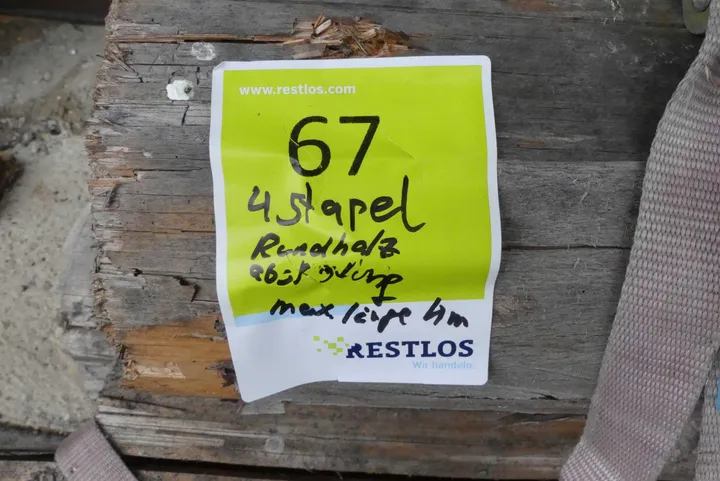 www.restlos.com
67
4 Stapel
Rundholz
max länge 4m
RESTLOS
Wir handeln.